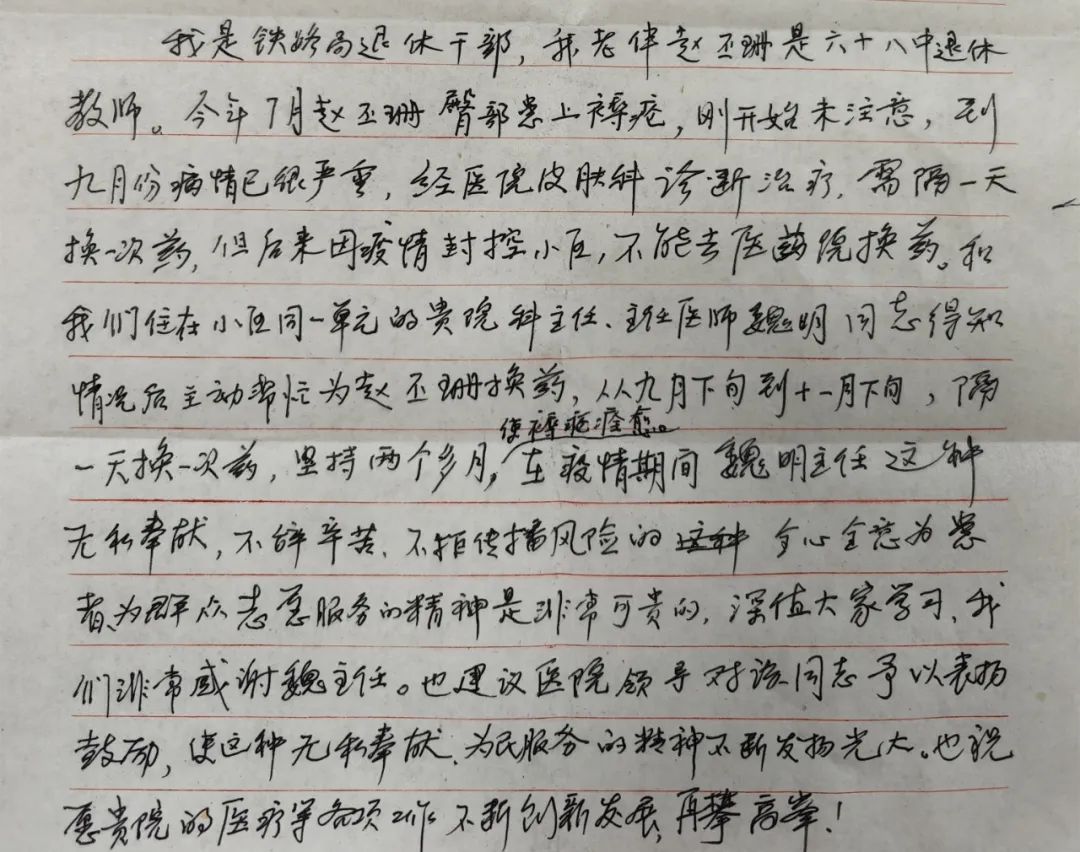 我是铁路局退休干部，我老伴赵丕珊是六十八中退休
教师。今年7月赵丕珊臀部患上褥疮，刚开始未注意，到
九月份病情已很严重，经医院皮肤科诊断治疗，需隔一天
换一次药，但后来因疫情封控小区，不能去医院换药。和
我们住在小区同一单元的贵院科主任、主任医师魏明同志得知
情况后主动帮忙为赵丕珊换药，从九月下旬到十一月下旬，隔
使褥疮痊愈。
一天换一次药，坚持两个多月，在疫情期间魏明主任这种
无私奉献，不辞辛苦、不拒传播风险的这种全心全意为患
者、为群众志愿服务的精神是非常可贵的，深值大家学习，我
们非常感谢魏主任。也建议医院领导对该同志予以表扬
鼓励，使这种无私奉献、为民服务的精神不断发扬光大。也祝
愿贵院的医疗等各项工作不断创新发展，再攀高峰！